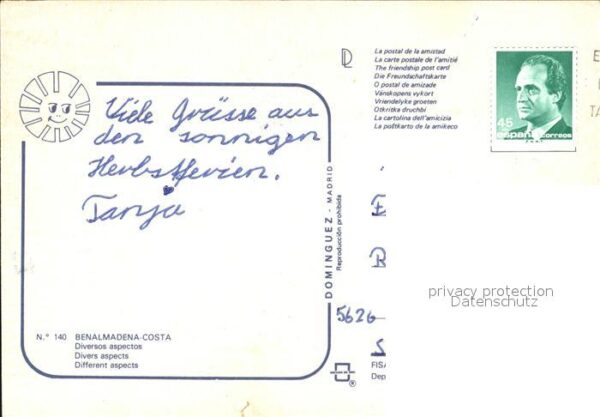 La postal de la amistad
La carte postale de l'amitié
The friendship post card
Die Freundschaftskarte
O postal de amizade
Vänskapens vykort
Vriendelyke groeten
Otkritka druchbi
La cartolina dell'amicizia
La poŝtkarto de la amikeco
45
españa correos
E
TA
Viele Grüsse aus
den sonnigen
Herbstferien.
Tanja
DOMINGUEZ - MADRID
Reproducción prohibida
E
B
5626
privacy protection
Datenschutz
N.° 140 BENALMADENA-COSTA
Diversos aspectos
Divers aspects
Different aspects
FISA
Dep